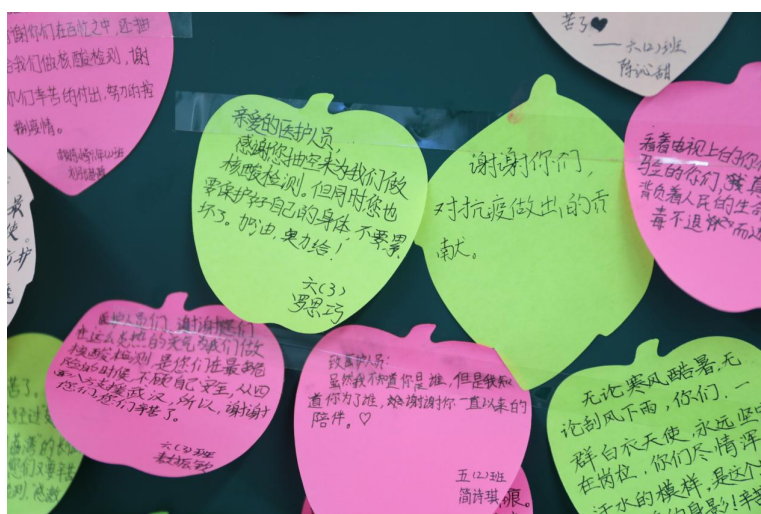 谢你们在百忙之中,还抽
给我们做核酸检测,谢
你们辛苦的付出,努力的控
制疫情。
苦了♥
——六(2)班
陈沁甜
亲爱的医护人员,
感谢您抽空来为我们做
核酸检测。但同时您也
要保护好自己的身体,不要累
坏了。加油,奥力给!
六(3)
罗思巧
谢谢你们,
对抗疫做出的贡
献。
看着电视上的你们
背负着人民的生命
毒不退
医护人员们,谢谢您们
在这么炎热的天气为我们做
核酸检测,是你们在最危
险的时候,不顾自己安全,从四
支援武汉,所以,谢谢
您们,您们辛苦了。
六(3)班
致医护人员:
虽然我不知道你是谁,但是我知
道你为了谁,谢谢你一直以来的
陪伴。♡
五(2)班
简诗琪
无论寒风酷暑,无
论刮风下雨,你们,一
群白衣天使,永远坚守
在岗位,你们尽情浑
汗水的模样,是这个
的身影!辛苦